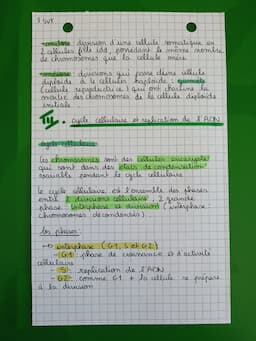 SVT
mitose : division d'une cellule somatique en
2 cellules filles idd, possédant le même nombre
de chromosomes que la cellule mère
méiose : divisions qui passe d'une cellule
diploïde à 4 cellules haploïdes : gamète
(cellule reproductrice) qui ont chacune la
moitié des chromosomes de la cellule diploïde
initiale
III. cycle cellulaire et réplication de l'ADN
cycle cellulaire
Les chromosomes sont des cellules eucaryote
qui sont dans des états de condensation
variable pendant le cycle cellulaire
Le cycle cellulaire est l'ensemble des phases
entre 2 divisions cellulaire, 2 grande
phase : interphase et division (interphase :
chromosomes décondensés).
Les phases
→ interphase (G1, S et G2)
- G1 : phase de croissance et d'activité
cellulaire
- S : réplication de l'ADN
- G2 : comme G1 + la cellule se prépare
à la division